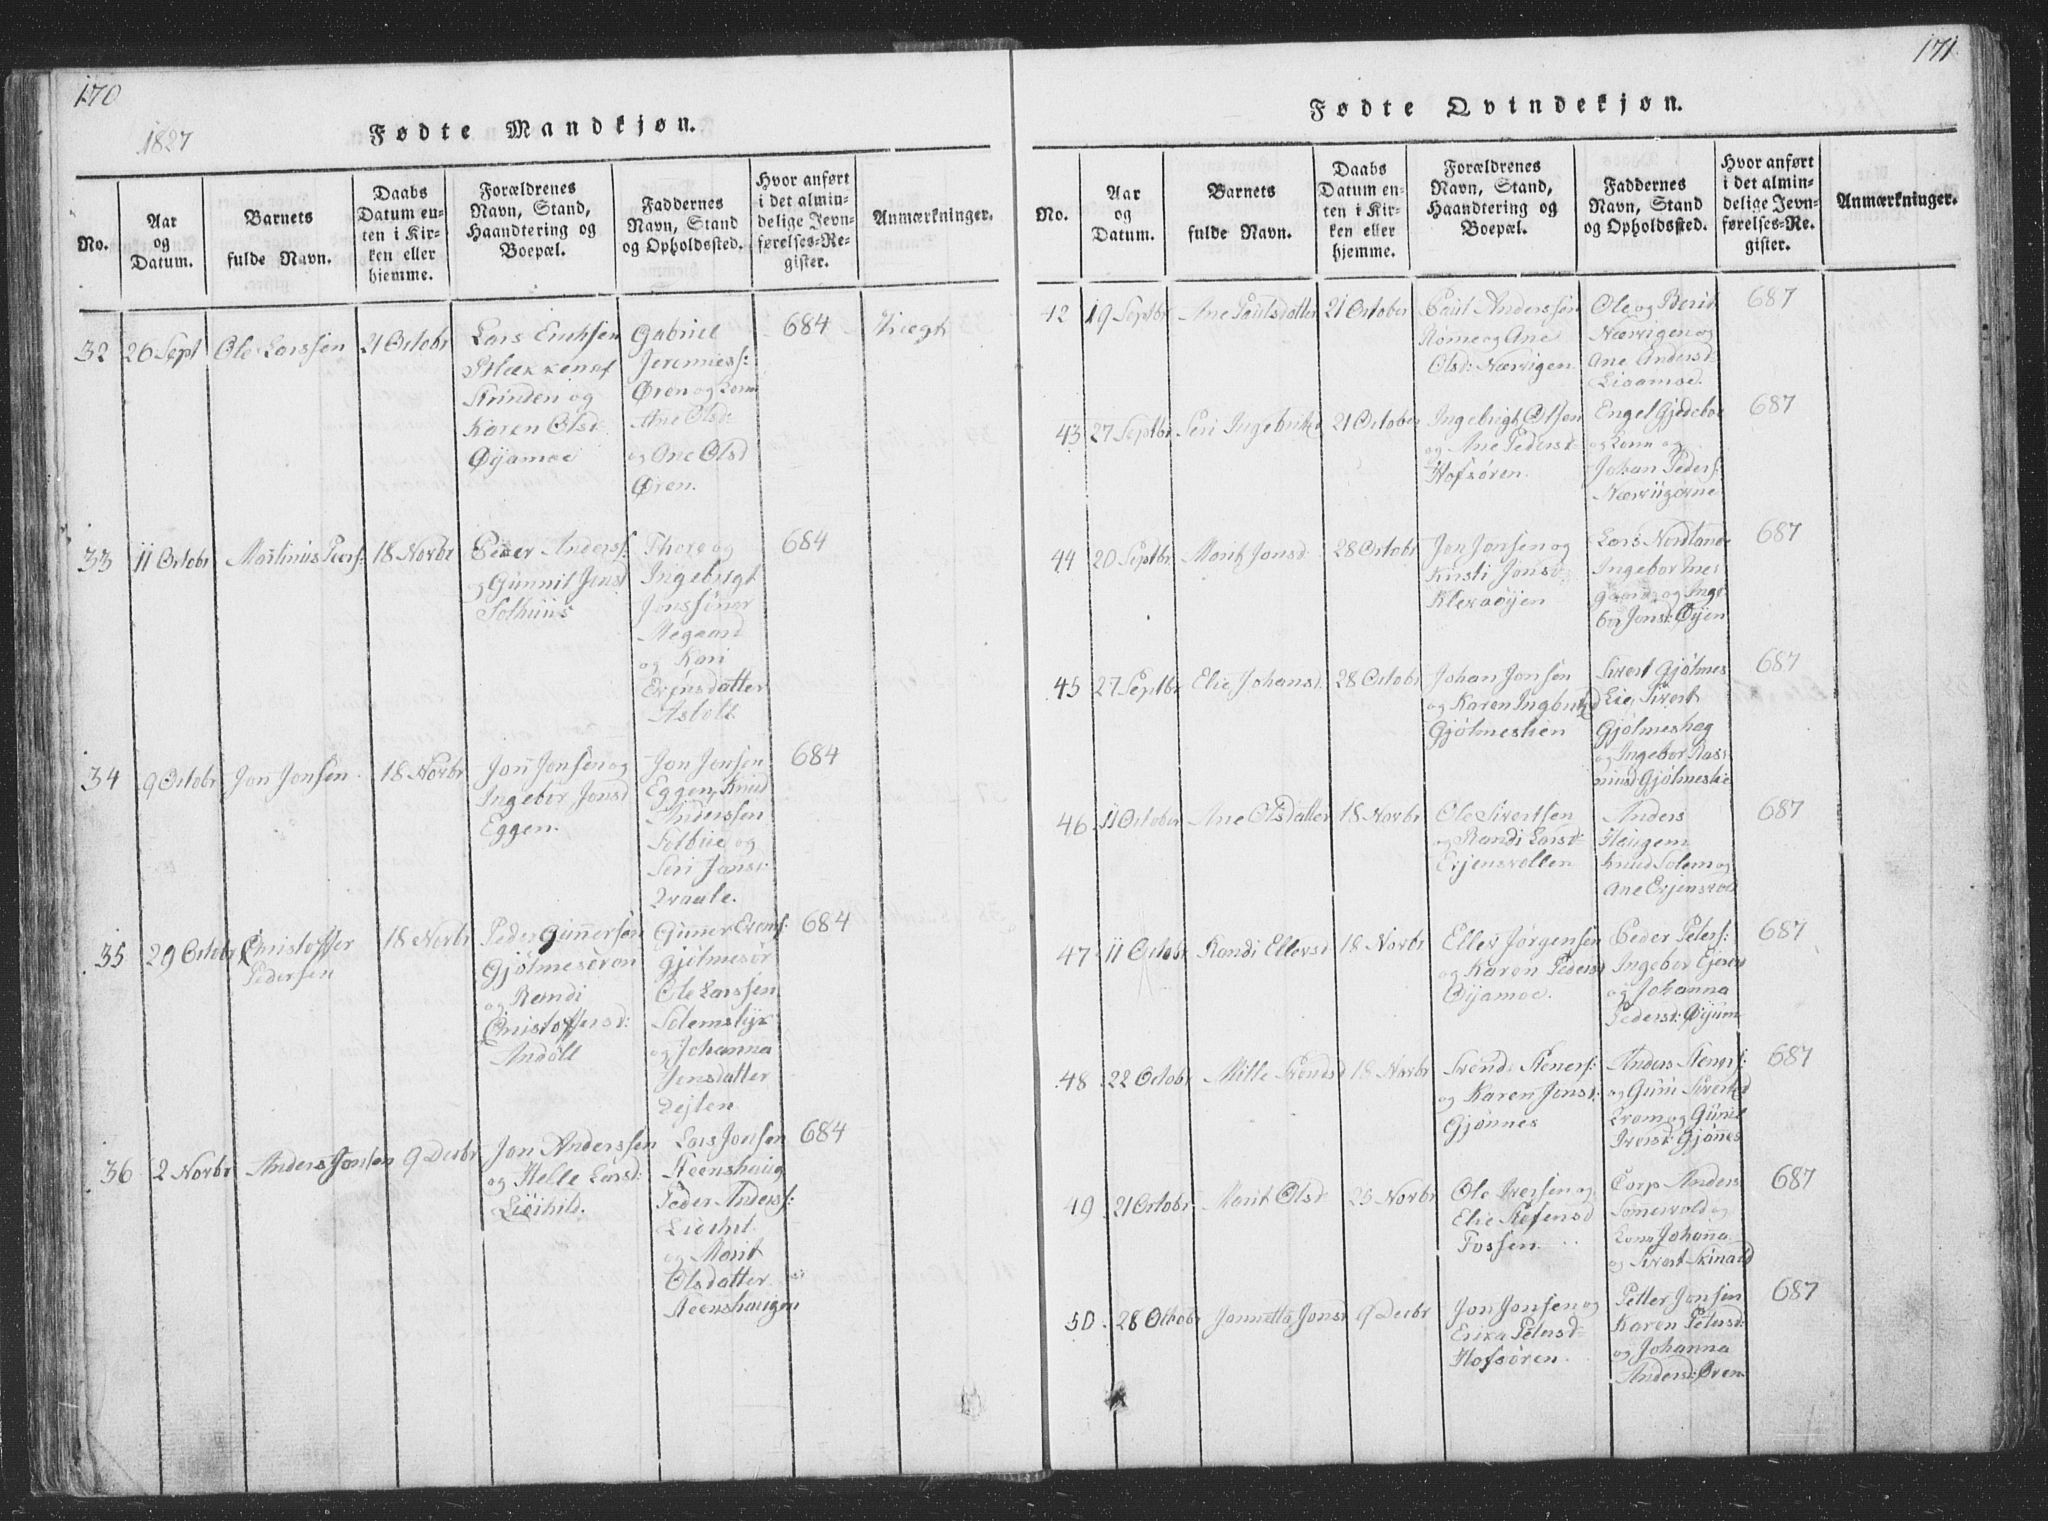 170
1827
Fødte Mandkjøn.
No.
Aar
og
Datum.
Barnets
fulde Navn.
Daabs
Datum en-
ten i Kir-
ken eller
hjemme.
Forældrenes
Navn, Stand,
Haandtering og
Boepæl.
Faddernes
Navn, Stand
og Opholdssted.
Hvor anført
i det almin-
delige Jevn-
førelses-Re-
gister.
Anmærkninger.
32
26 Sept
Ole Larssen
21 Octobr
Lars Erichsen
Strinden og
Karen Olsd:
Øyamoe
Gabriel
Jeremiess:
Øren og Kone
Ane Olsd:
og Ane Olsd
Øren.
684
Uægt
33
11 Octobr
Martinus Peers:
18 Novbr
Peder Anderss:
og Gunnil Jonsd
Solhuus
Thore og
Ingebrigt
Jonssøner
Megaard
og Kari
Erensdatter
Asbøll
684
34
9 Octobr
Jon Jonsen
18 Novbr
Jon Jonsen og
Ingebor Jonsd
Eggen.
Jon Jonsen
Eggen, Knud
Anderssen
Solbue og
Seri Jonsd:
Qvaale.
684
35
29 Octobr
Christoffer
Pedersen
18 Novbr
Peder Gunnersen
Gjølmesøren
og Randi
Christoffersd:
Andøll
Guner Evens:
Gjølmesør
Ole Larssen
Solemslyk
og Johanna
Jensdatter
684
36
2 Novbr
Anders Jonsen
9 Decbr
Jon Anderssen
og Helle Larsd:
Lars Jonsen
Steenshaug
Peder Anderss:
og Marit
Olsdatter
Steenshaugen
684
171
Fødte Qvindekjøn.
No.
Aar
og
Datum.
Barnets
fulde Navn.
Daabs
Datum en-
ten i Kir-
ken eller
hjemme.
Forældrenes
Navn, Stand,
Haandtering og
Boepæl.
Faddernes
Navn, Stand
og Opholdssted.
Hvor anført
i det almin-
delige Jevn-
førelses-Re-
gister.
Anmærkninger.
42
19 Septbr
Ane Paulsdatter
21 October
Paul Anderssen
Rømme og Ane
Olsd: Nærvigen
Ole og Berit
Nærvigen og
Ane Andersd
687
43
27 Septbr
Seri Ingebrichtd
21 October
Ingebrigt Olsen
og Ane Pedersd:
Hofsøren.
Engel Gjedeboe
og Kone og
Johan Peders:
687
44
20 Septbr
Marit Jonsd
28 Octobr
Jon Jonsen og
Kirsti Jonsd
Klevaøyen
Lars Nordland
Ingebor
og Inge-
bor Jonsd: Øyen
687
45
27 Septbr
Elie Johansd
28 Octobr
Johan Jonsen
og Karen Ingbrichtd
Gjølmeslien
Sivert Gjølmes
Lie, Sivert
Gjølmeshag
og Ingebor Ras-
musd Gjølmeslie
687
46
11 October
Ane Olsdatter
18 Novbr
Ole Sivertsen
og Randi Larsd:
Evjensvollen
Anders
Haugen
Knud Solem og
Ane Evjensvol
687
47
11 Octobr
Randi Ellevsd
18 Novbr
Ellev Jørgensen
og Karen Pedersd
Øyamoe.
Peder Peters:
Ingebor
og Johanna
Pedersd: Øyum
687
48
22 Octobr
Mille Svendsd
18 Novbr
Svend Steners:
og Karen Jonsd:
Gjønnes
Anders Steners:
og Guru Sivertsd
og Gunil
Iversd: Gjønnes
687
49
21 Octobr
Marit Olsd
25 Novbr
Ole Iversen og
Elie Stefensd
Fossen.
Corp Anders
og
Kone Johana
og Sivert
687
50
28 Octobr
Jonnetta Jonsd
9 Decbr
Jon Jonsen og
Erika Petersd:
Hofsøren.
Petter Jonsen
Karen Petersd:
og Johanna
Andersd: Øren
687